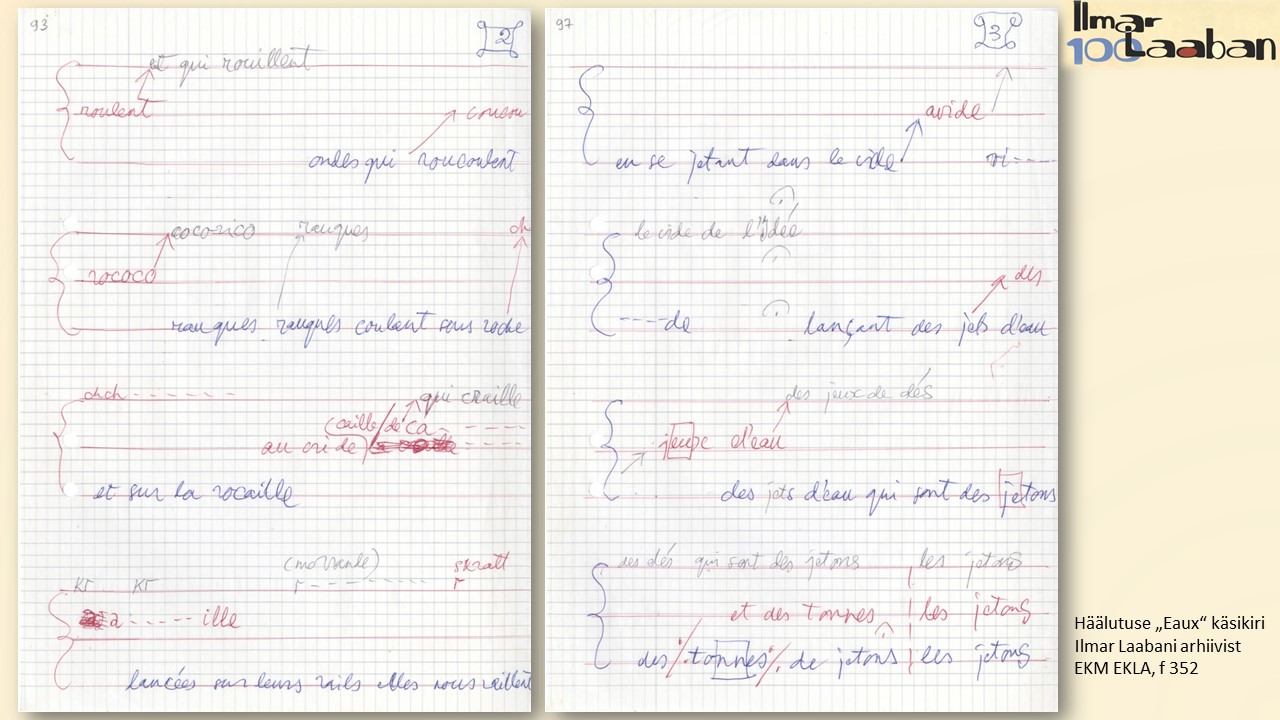 93
2
et qui rouillent
roulent
ondes qui roucoulent
cocorico rauques ch
rococo
rauques rauques coulant sous roche
chch - - - - - -
qui craille
(caille/de ca - - - -
au cri de
et sur la rocaille
kr kr (morrande) skratt
r - - - - - - - r
a - - - - - ille
lancées sur leurs rails elles nous raillent
97
3
avide
en se jetant dans le vide vi - - - -
le vide de l'Idée
des
- - - - de lançant des jets d'eau
des jeux de dés
jeux d'eau
des jets d'eau qui sont des jetons
des dés qui sont des jetons les jetons
et des tonnes les jetons
des / tonnes / de jetons les jetons
Ilmar
100 Laaban
Häälutuse „Eaux“ käsikiri
Ilmar Laabani arhiivist
EKM EKLA, f 352